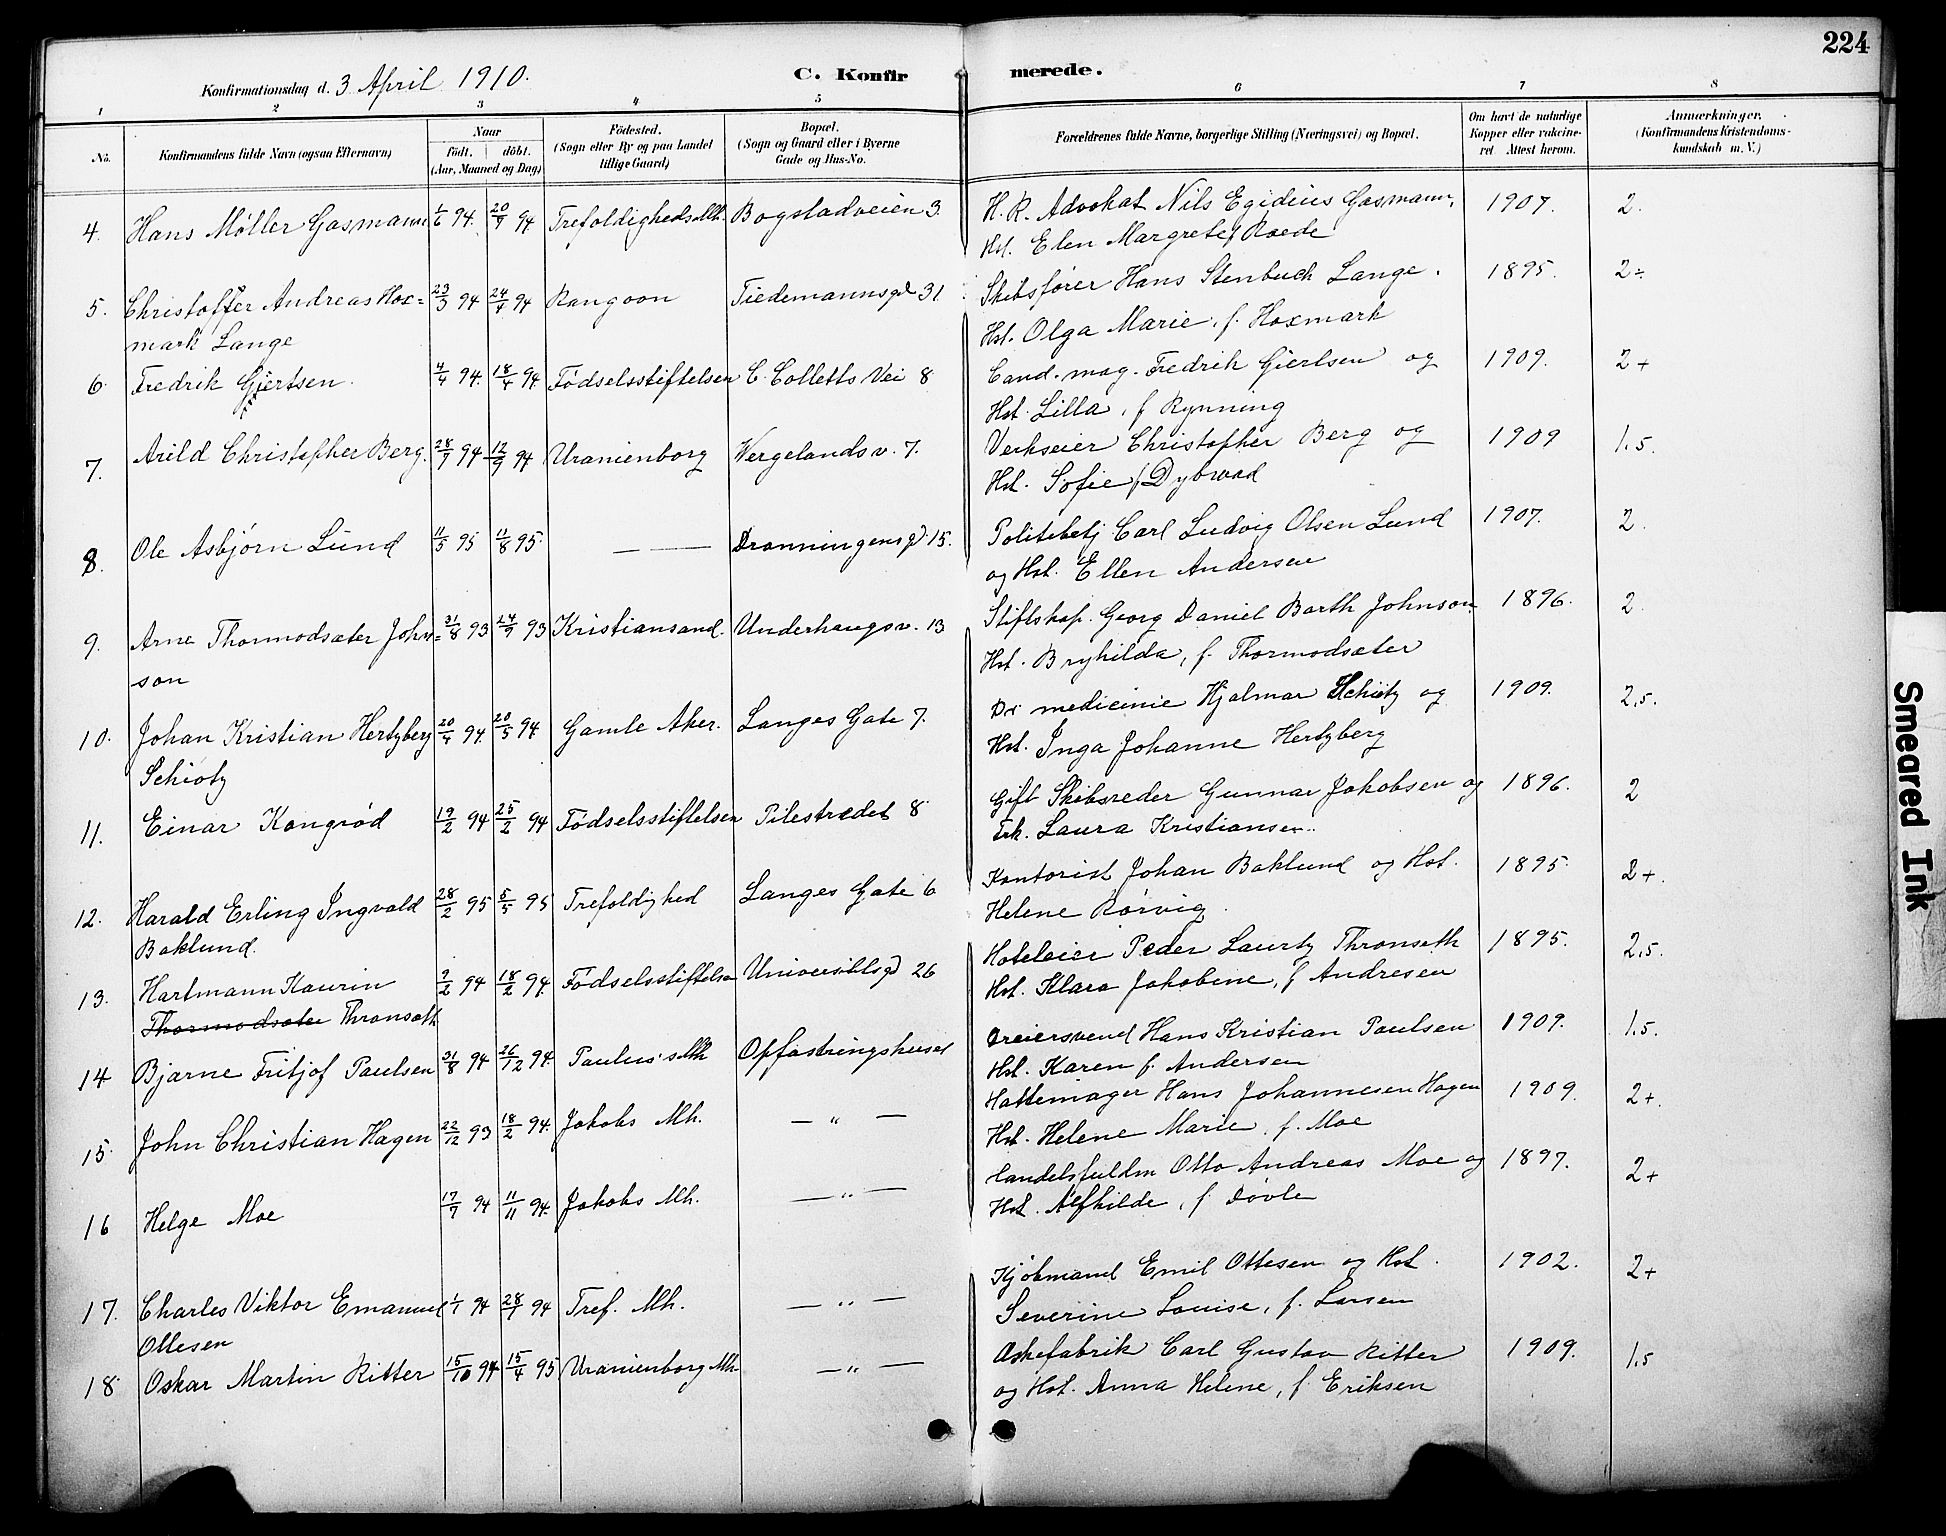 224
Konfirmationsdag d. 3 April 1910.
C. Konfirmerede.
1 2 3 4 5 6 7 8
No. Konfirmandens fulde Navn (ogsaa Efternavn) Naar født. døbt. (Aar, Maaned og Dag) Fødested. (Sogn eller By og paa Landet tillige Gaard) Bopæl. (Sogn og Gaard eller i Byerne Gade og Hus-No. Forældrenes fulde Navne, borgerlige Stilling (Næringsvei) og Bopæl. Om havt de naturlige Kopper eller vakcineret. Attest herom. Anmærkninger. (Konfirmandens Kristendomskundskab m. V.)
4. Hans Møller Gasmann 1/6 94. 20/9 94 Trefoldigheds Mh. Bogstadveien 3. H. R. Advokat Nils Egidius Gasmann, 1907. 2.
Hst. Elen Margrete f Roede
5. Christoffer Andreas Hox= 23/3 94 24/4 94 Rangoon Tiedemannsgd 31 Skibsfører Hans Stenbuch Lange. 1895. 2÷
mark Lange Hst. Olga Marie, f. Hoxmark
6. Fredrik Gjertsen. 4/4 94. 18/4 94. Fødselsstiftelsen C. Colletts Vei 8 Cand. mag. Fredrik Gjertsen og 1909. 2+
Hst. Lilla, f Rynning
7. Arild Christopher Berg. 28/7 94 12/9 94 Uranienborg Wergelandsv. 7. Verkseier Christopher Berg og 1909 1,5.
Hst. Sofie f Dybwad
8. Ole Asbjørn Lund 11/5 95 11/8 95. — — Dronningensgd. 15. Politibetj Carl Ludvig Olsen Lund 1907. 2.
og Hst. Ellen Andersen
9. Arne Thormodsæter John= 31/8 93 24/9 93 Kristiansand. Underhaugsv. 13 Stiftskap. Georg Daniel Barth Johnson 1896. 2.
son Hst. Bryhilda, f. Thormodsæter
10. Johan Kristian Hertzberg 20/4 94. 20/5 94 Gamle Aker. Langes Gate 7. Dr medicinie Hjalmar Schiøtz og 1909. 2,5.
Schiøtz Hst. Inga Johanne Hertzberg
11. Einar Kongrød 19/2 94 25/2 94 Fødselsstiftelsen Pilestrædet 8 Gift Skibsreder Gunnar Jakobsen og 1896. 2
Frk. Laura Kristiansen.
12. Harald Erling Ingvald 28/2 95 5/5 95 Trefoldighed Langes Gate 6 Kontorist Johan Baklund og Hst. 1895. 2+.
Baklund. Helene Rørvig.
13. Hartmann Kaurin 9/2 94 18/2 94. Fødselsstiftelsen Universitetsgd 26 Hoteleier Peder Laurtz Thronseth 1895. 2,5.
Thormodsæter Thronseth Hst. Klara Jakobine, f Andresen
14 Bjarne Fritjof Paulsen 31/8 94 26/12 94. Paulus's Mh Opfostringshuset Dreiersvend Hans Kristian Paulsen 1909. 1,5.
Hst. Karen f. Andersen
15. John Christian Hagen 22/12 93 18/2 94. Jakobs Mh. — " — Hattemager Hans Johannesen Hagen 1909. 2+.
Hst. Helene Marie, f. Moe
16 Helge Moe 17/7 94 11/11 94. Jakobs Mh. — " — Handelsfuldm Otto Andreas Moe og 1897. 2+
Hst. Alfhilde, f. Døvle
17. Charles Viktor Emanuel 1/1 94 28/7 94 Tref. Mh. — " — Kjøbmand Emil Ottesen og Hst. 1902. 2+
Ottesen Severine Louise, f. Larsen
18. Oskar Martin Ritter 15/10 94 15/4 95 Uranienborg Mh. — " — Askefabrik Carl Gustav Ritter 1909. 1,5
og Hst. Anna Helene, f Eriksen
Smeared Ink